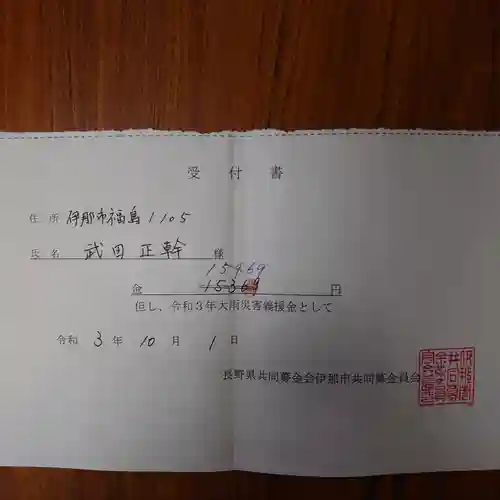 受付書
住所 伊那市福島1105
氏名 武田正幹 様
15469
金 15369 円
但し、令和3年大雨災害義援金として
令和 3 年 10 月 1 日
長野県共同募金会伊那市共同募金委員会